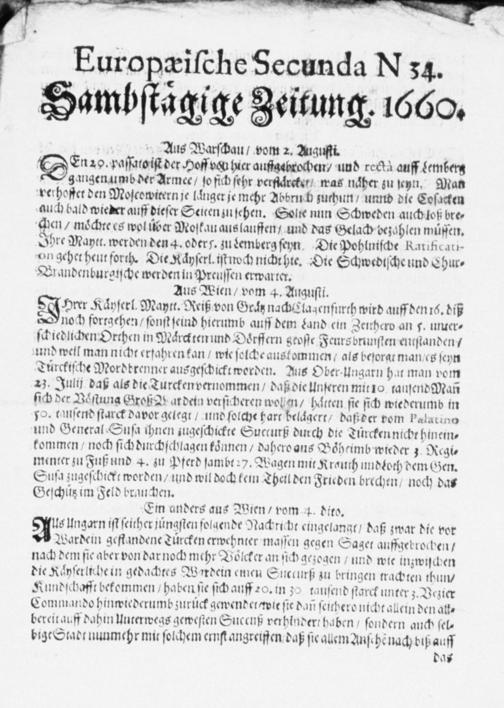 Europæische Secunda N 34.
Sambstägige Zeitung. 1660.
Aus Warschau / vom 2. Augusti.
DEn 29. passato ist der Hoff von hier auffgebrochen / und rectà auff Lemberg
gangen umb der Armee / so sich sehr verstärcket / was näher zu seyn. Man
verhoffet den Moscowitern je länger je mehr Abbruch zuthun / unnd die Cosacken
auch bald wieder auff dieser Seiten zu sehen. Solte nun Schweden auch loß bre-
chen / möchte es wol über Moskau auslauffen / und das Gelach bezahlen müssen.
Ihre Maytt. werden den 4. oder 5. zu Lemberg seyn. Die Pohlnische Ratificati-
on gehet heut forth. Die Käyserl. ist noch nicht hie. Die Schwedische und Chur-
Brandenburgische werden in Preussen erwartet.
Aus Wien / vom 4. Augusti.
IHrer Käyserl. Maytt. Reiß von Grätz nach Clagenfurth wird auff den 16. diß
noch fortgehen / sonst seind hierumb auff dem Land ein Zeithero an 5. unter-
schiedlichen Orthen in Märckten und Dörffern grosse Feursbrunsten entstanden /
und weil man nicht erfahren kan / wie solche auskommen / als besorgt man / es seyn
Türckische Mordbrenner ausgeschickt worden. Aus Ober-Ungarn hat man vom
23. Julij, daß als die Türcken vernommen / daß die Unseren mit 10. tausend Mañ
sich der Vöstung Groß Wardein versicheren wollen / hätten sie sich wiederumb in
50. tausend starck davor gelegt / und solche hart belägert / daß der vom Palatino
und General Susa ihnen zugeschickte Succurß durch die Türcken nicht hinein-
kommen / noch sich durchschlagen können / dahero aus Böheimb wieder 3. Regi-
menter zu Fuß und 4. zu Pferd sambt 27. Wagen mit Kraut und Loth dem Gen.
Susa zugeschickt worden / und wil doch kein Theil den Frieden brechen / noch das
Geschütz im Feld brauchen.
Ein anders aus Wien / vom 4. dito.
AUs Ungarn ist seither jüngsten folgende Nachricht eingelangt / daß zwar die vor
Wardein gestandene Türcken erwehnter massen gegen Saget auffgebrochen /
nach dem sie aber von dar noch mehr Völcker an sich gezogen / und wie inzwischen
die Käyserliche in gedachtes Wardein einen Succurß zu bringen trachten thun /
Kundschafft bekommen / haben sie sich auff 20. in 30. tausend starck unter 3. Vezier
Commando hinwiederumb zurück gewendet / wie sie dañ seithero nicht allein den all-
bereit auff dahin Unterwegs gewesten Succurß verhindert haben / sondern auch sel-
bige Stadt nunmehr mit solchem ernst angreiffen / daß sie allem Ansehē nach biß auff
das